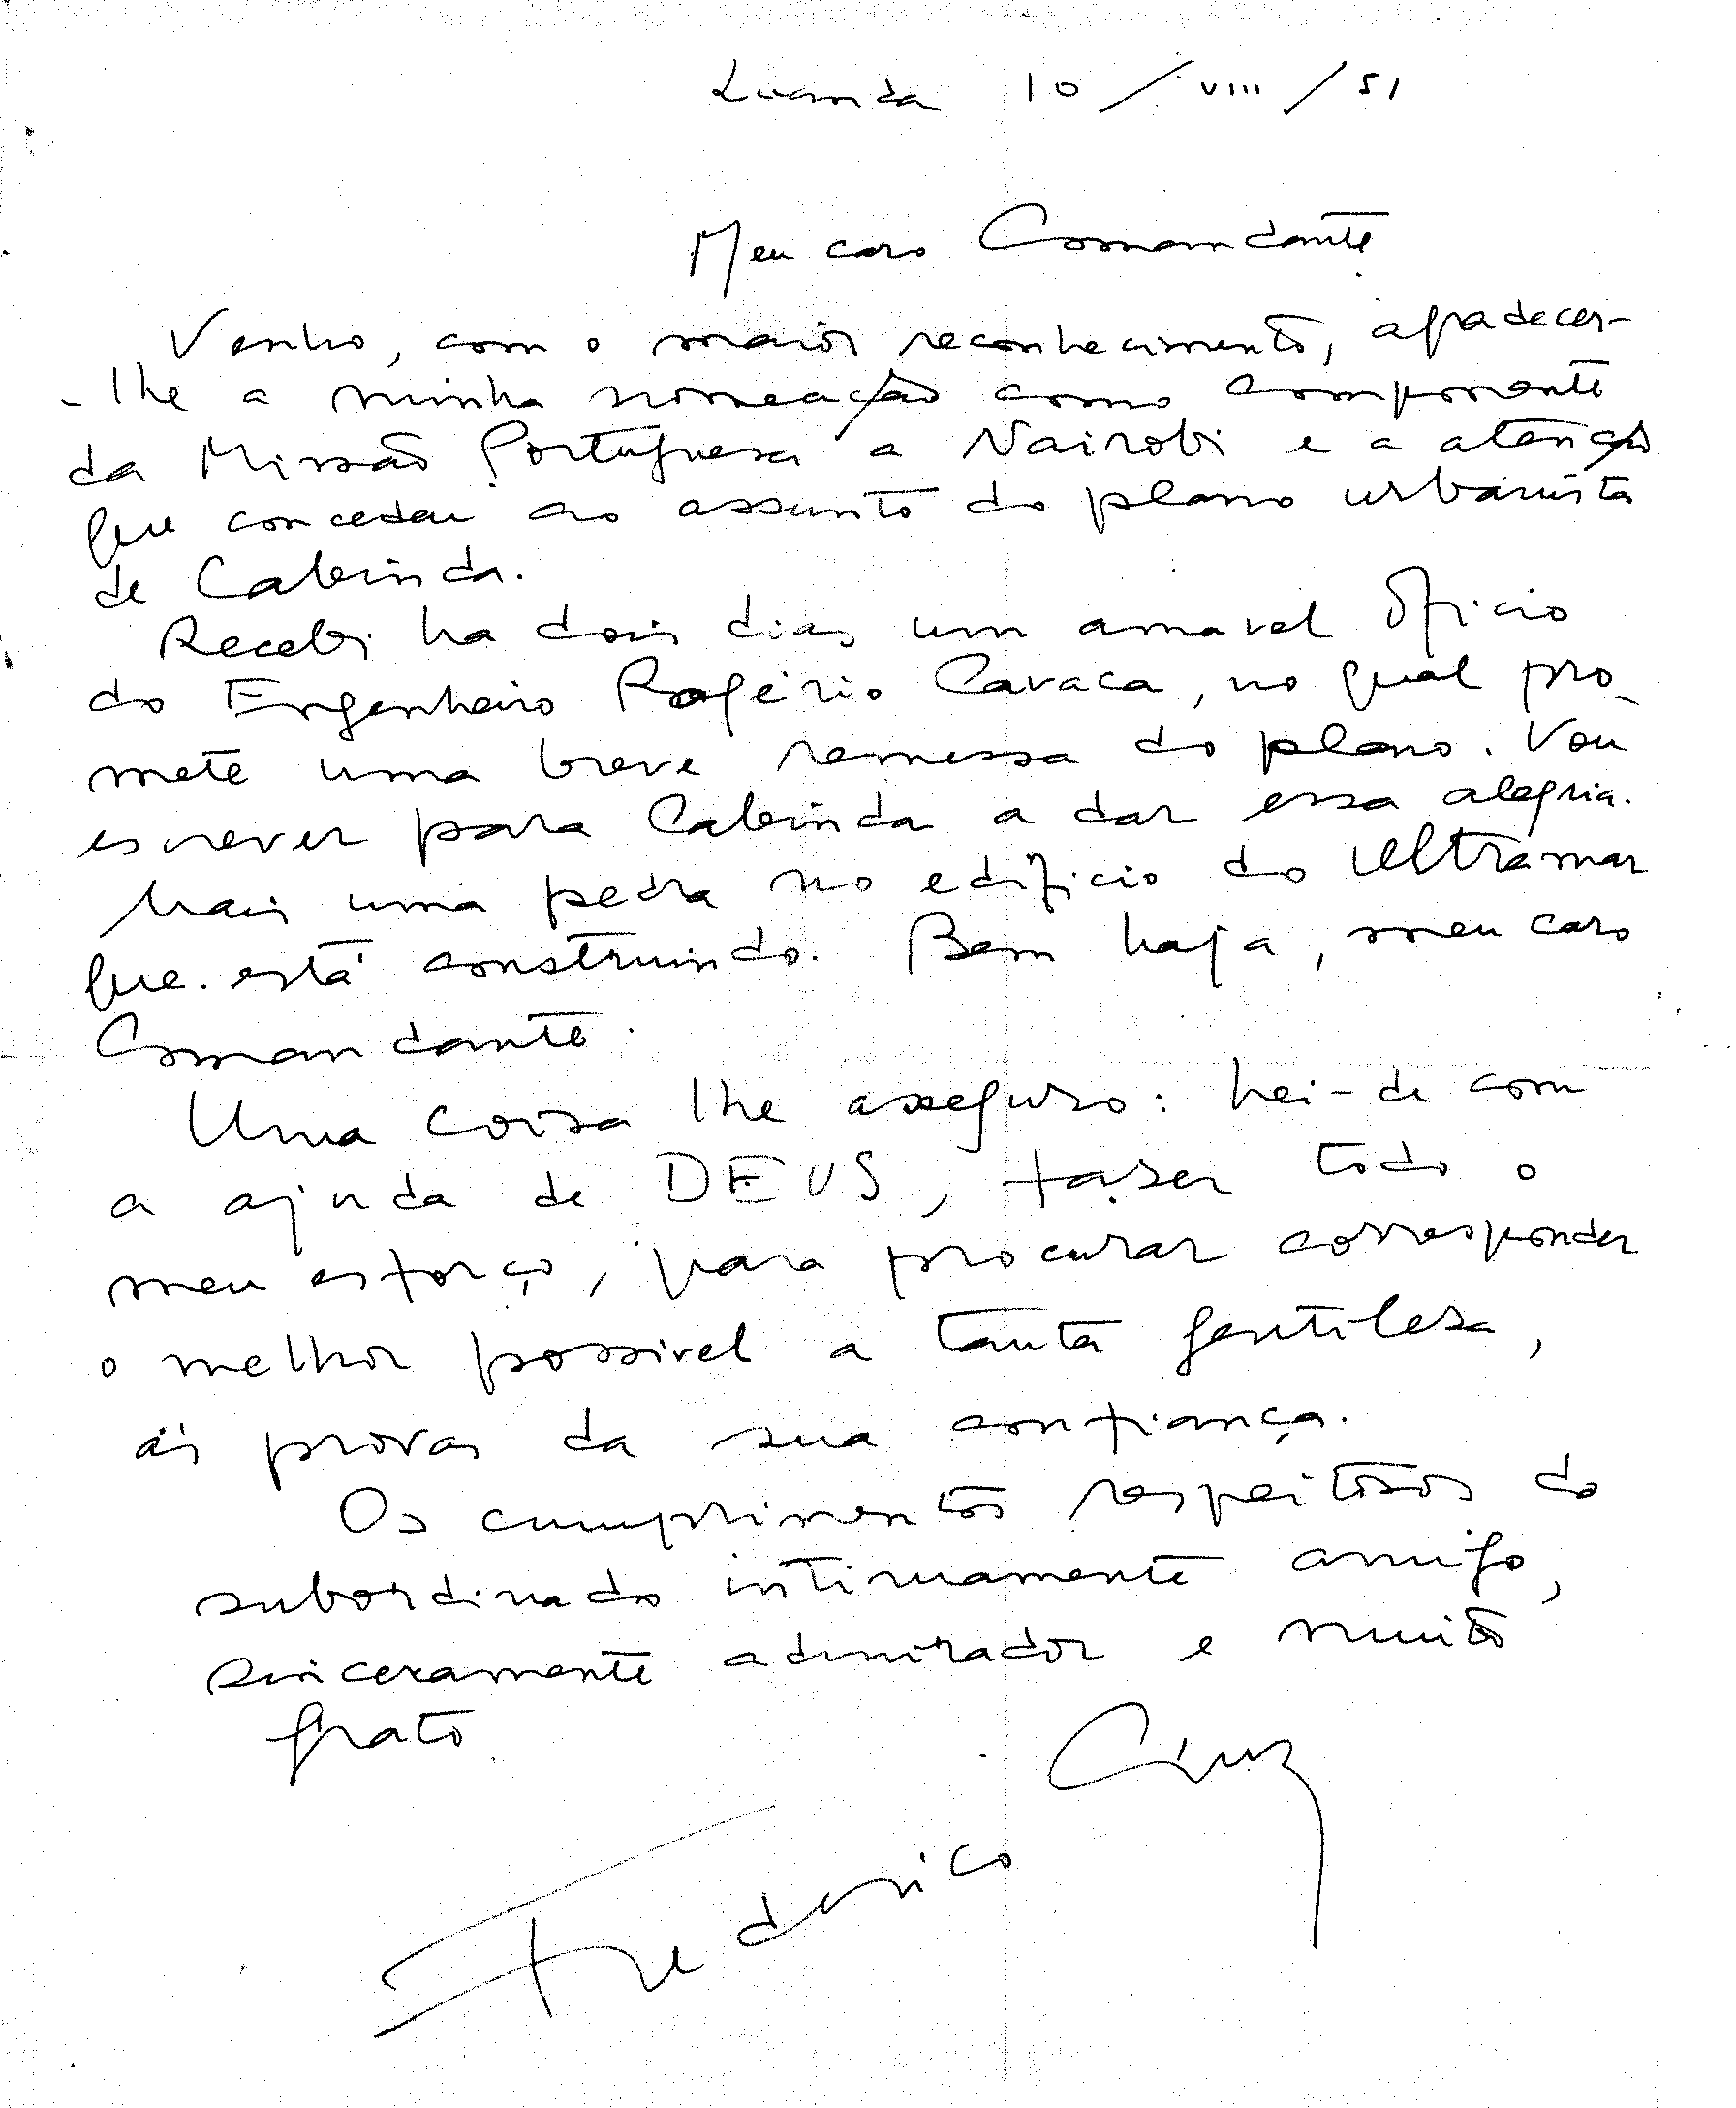 Luanda 10/VIII/51
Meu caro Comandante
Venho, com o maior reconhecimento, agradecer-
-lhe a minha nomeação como componente
da Missão Portuguesa a Nairobi e a atenção
que concedeu ao assunto do plano urbanista
de Cabinda.
Recebi ha dois dias um amavel oficio
do Engenheiro Rogério Cavaca, no qual pro-
mete uma breve remessa do plano. Vou
escrever para Cabinda a dar essa alegria.
Mais uma pedra no edificio do Ultramar
que está construindo. Bem haja, meu caro
Comandante.
Uma coisa lhe asseguro: hei-de com
a ajuda de DEUS, fazer todo o
meu esforço, para procurar corresponder
o melhor possivel a tanta gentilesa,
ás provas da sua confiança.
Os cumprimentos respeitosos do
subordinado intimamente amigo,
sinceramente admirador e muito
grato
Frederico Cruz